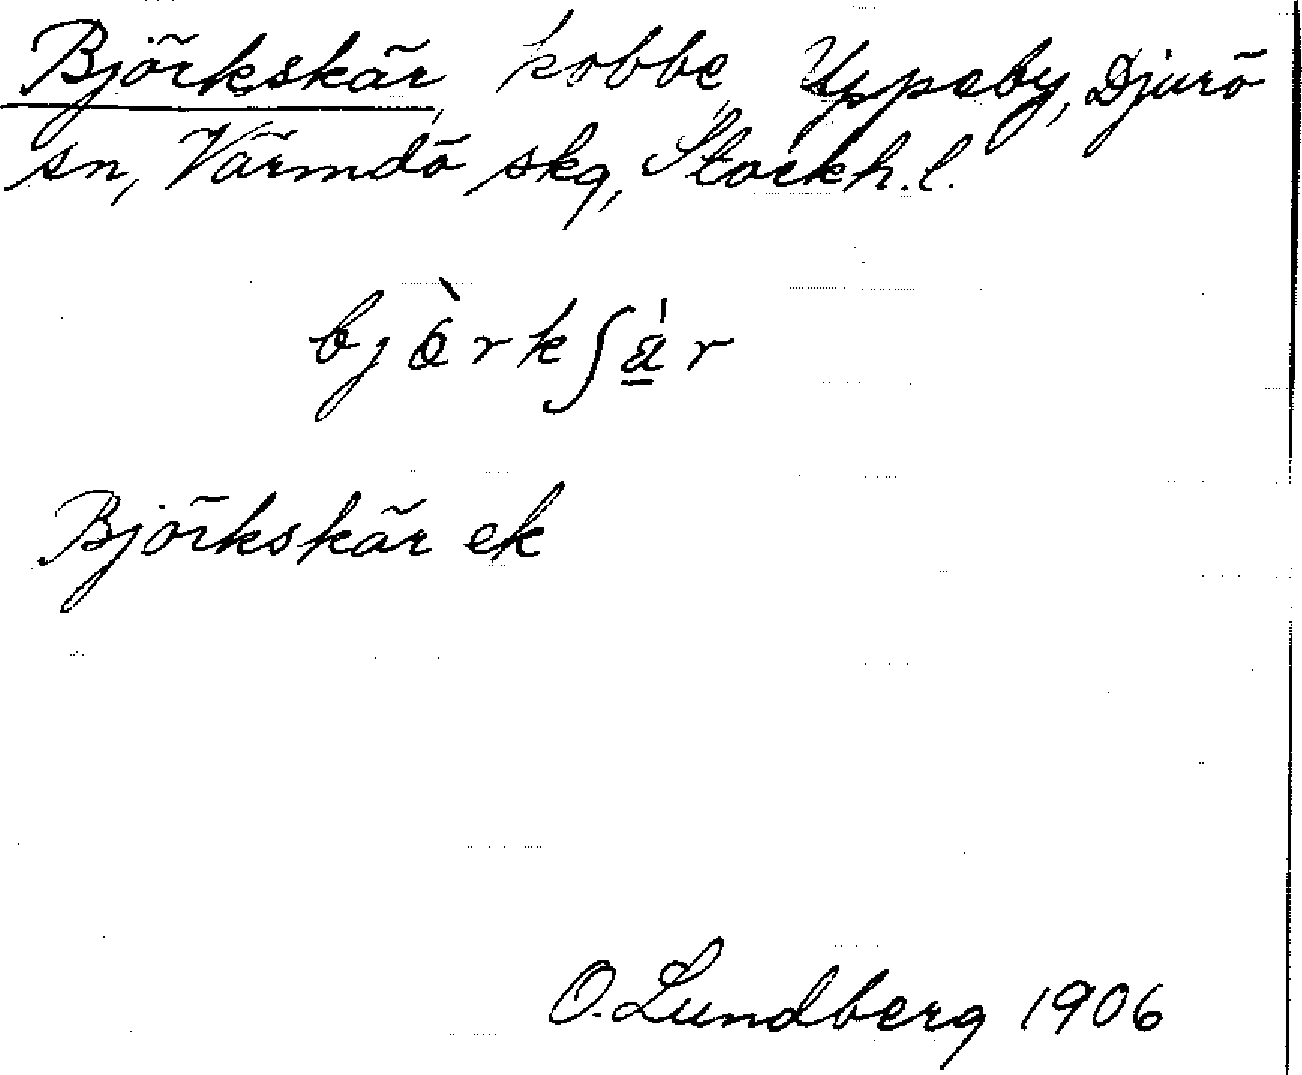 Björkskär, kobbe, Uppeby, Djurö
sn, Värmdö skg, Stockh. l.
bjòrkʃä̀r
Björkskär ek
O. Lundberg 1906